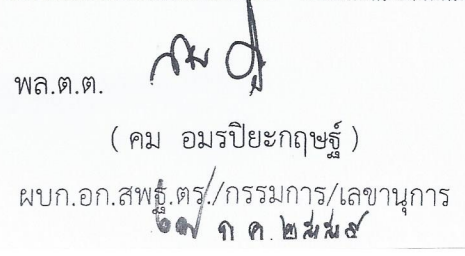 พล.ต.ต.
( คม อมรปิยะกฤษฐ์ )
ผบก.อก.สพฐ.ตร./กรรมการ/เลขานุการ
ก.ค. ๒๕๕๙